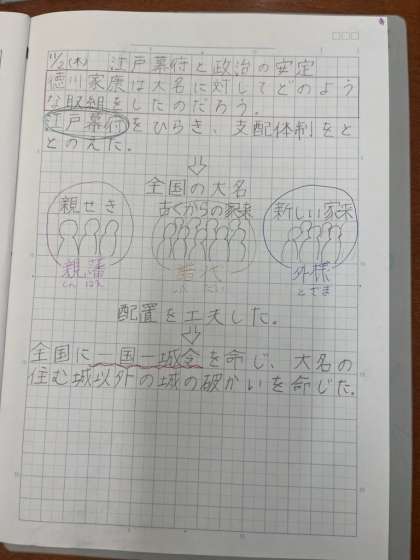 11/2(木) 江戸幕府と政治の安定
徳川家康は大名に対してどのよう
な取組をしたのだろう。
江戸幕府をひらき、支配体制をと
とのえた。
全国の大名
親せき
古くからの家来
新しい家来
親藩
しん ぱん
譜代
ふ だい
外様
とざま
配置を工夫した。
全国に一国一城令を命じ、大名の
住む城以外の城の破かいを命じた。